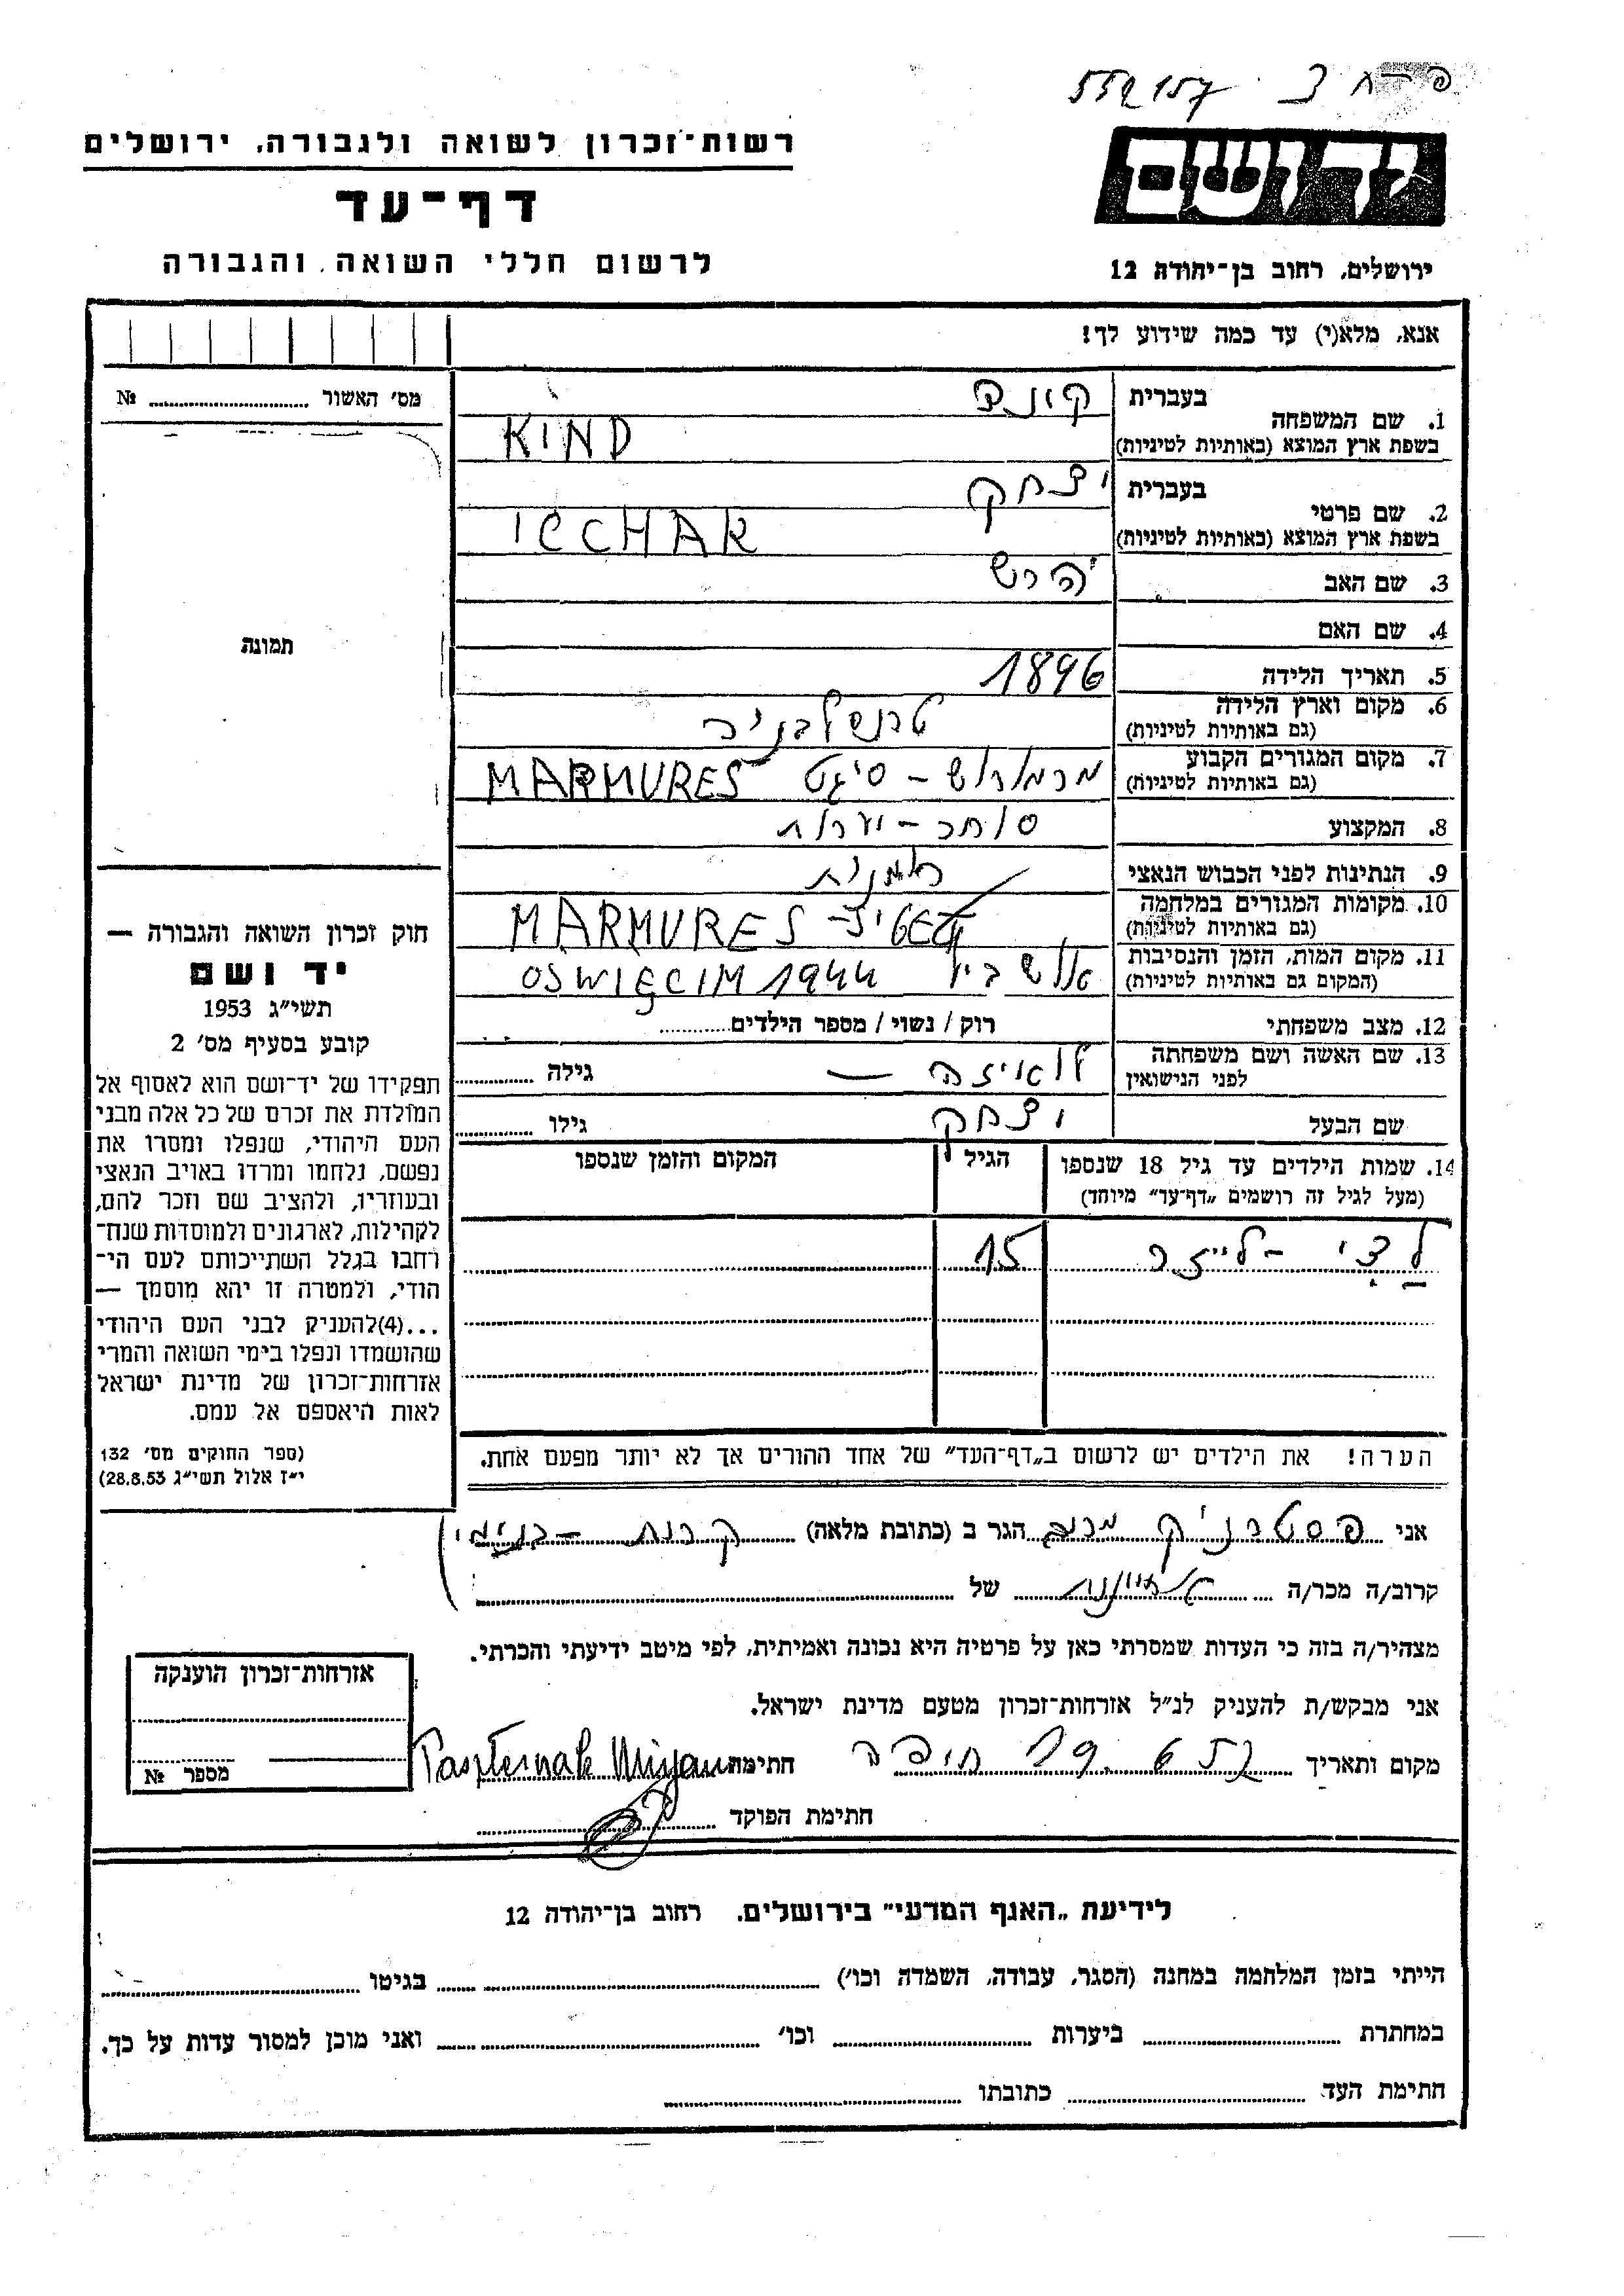 552157
רשות־זכרון לשואה ולגבורה, ירושלים
יד ושם
דף־עד
לרשום חללי השואה והגבורה
ירושלים, רחוב בן־יהודה 12
אנא, מלא(י) עד כמה שידוע לך!
מס׳ האשור № 
1. שם המשפחה
בעברית
בשפת ארץ המוצא (באותיות לטיניות)
KIND
2. שם פרטי
בעברית יצחק
בשפת ארץ המוצא (באותיות לטיניות)
ICCHAK
3. שם האב הרש
4. שם האם
תמונה
5. תאריך הלידה 1896
6. מקום וארץ הלידה טרנסלבניה
(גם באותיות לטיניות)
7. מקום המגורים הקבוע מרמורוש – סיגט MARMURES
(גם באותיות לטיניות)
8. המקצוע סוחר – יערות
9. הנתינות לפני הכבוש הנאצי
10. מקומות המגורים במלחמה MARMURES
(גם באותיות לטיניות)
11. מקום המות, הזמן והנסיבות OŚWIĘCIM 1944
(המקום גם באותיות לטיניות)
12. מצב משפחתי רוק / נשוי / מספר הילדים
13. שם האשה ושם משפחתה לפני הנישואין לואיזה — גילה
שם הבעל יצחק גילו
14. שמות הילדים עד גיל 18 שנספו
(מעל לגיל זה רושמים „דף־עד״ מיוחד)
הגיל
המקום והזמן שנספו
15
הערה! את הילדים יש לרשום ב„דף־העד״ של אחד ההורים אך לא יותר מפעם אחת.
חוק זכרון השואה והגבורה —
יד ושם
תשי״ג 1953
קובע בסעיף מס׳ 2
תפקידו של יד־ושם הוא לאסוף אל
המולדת את זכרם של כל אלה מבני
העם היהודי, שנפלו ומסרו את
נפשם, נלחמו ומרדו באויב הנאצי
ובעוזריו, ולהציב שם וזכר להם,
לקהילות, לארגונים ולמוסדות שנח־
רחבו בגלל השתייכותם לעם הי־
הודי, ולמטרה זו יהא מוסמך —
...(4)להעניק לבני העם היהודי
שהושמדו ונפלו בימי השואה והמרי
אזרחות־זכרון של מדינת ישראל
לאות היאספם אל עמם.
(ספר החוקים מס׳ 132
י״ז אלול תשי״ג 28.8.53)
אני פסטרניק מרים הגר ב (כתובת מלאה) קרית – בנימין
קרוב/ה מכר/ה של
מצהיר/ה בזה כי העדות שמסרתי כאן על פרטיה היא נכונה ואמיתית, לפי מיטב ידיעתי והכרתי.
אני מבקש/ת להעניק לנ״ל אזרחות־זכרון מטעם מדינת ישראל.
מקום ותאריך חיפה 19.6.57 חתימה Pasternak Miryam
חתימת הפוקד
אזרחות־זכרון הוענקה
מספר №
לידיעת „האגף המדעי״ בירושלים, רחוב בן־יהודה 12
הייתי בזמן המלחמה במחנה (הסגר, עבודה, השמדה וכו׳) בגיטו
במחתרת ביערות וכו׳ ואני מוכן למסור עדות על כך.
חתימת העד כתובתו